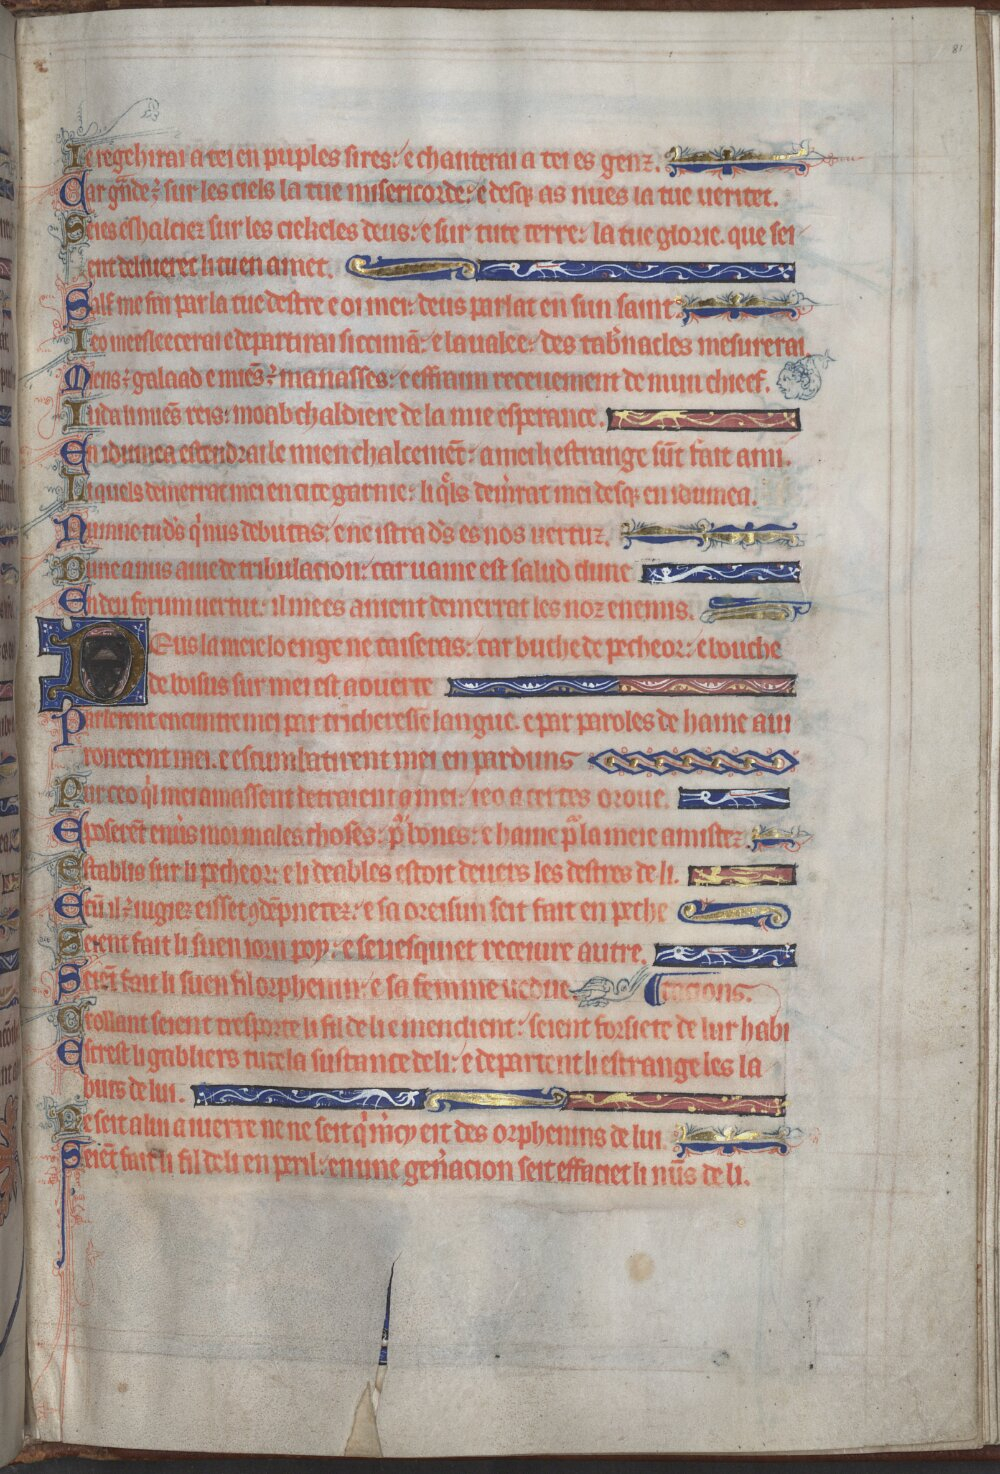 81
Ie regehirai a tei en puples sires: e chanterai a tei es genz.
Car gñde ⁊ sur les ciels la tue misericorde: e desq; as nues la tue veritet.
Seies eshalciez sur les cielx eles deus: e sur tute terre: la tue glorie. que sei
ent deliueret li tuen amet.
Salf me fai par la tue destre e oi mei: deus parlat en sun saint
Ieo mesleecerai e departirai siccimã: e la ualee: des tab'nacles mesurerai
Mens ⁊ galaad e miẽs ⁊ manasses: e effraim receuement de mun chief.
Iuda li miẽs reis: moab chaldiere de la mie esperance.
En idumea estendrai le mien chalcemẽt: a mei li estrange sũt fait ami.
Li quels demerrat mei en cite garnie: li q̃ls dem'rat mei desq; en idumea.
Numne tu d's q' nus debutas: e ne istra d's es nos uertuz.
Dune a nus aiue de tribulacion: car uaine est salud dume
En deu ferum uertut: il mees a nient demerrat les noz enemis.
Deus la meie loenge ne taiseras: car buche de pecheor: e bouche
de boisus sur mei est aouerte
Parlerent encuntre mei par tricheresse langue. e par paroles de haine aui
ronerent mei. e escumbatirent mei en parduns
Pur ceo q̃l mei amassent detraient a mei: ieo a certes oroue.
E poserẽt enuis moi males choses: p' bones: e haine p' la meie amistez.
Establis sur li pecheor: e li deables estoit deuers les destres de li.
Cũ il ⁊ iugiez eisset 9dẽpnetez: e sa oreisun seit fait en peche
Seient fait li suen iorn poy: e se uesquiet receiure autre.
Seiẽt fait li suen fil orphenin: e sa femme uedue.
tacions.
Crollant seient tresporte li fil de li e mendient: seient forsiete de lur habi
Estrest li gabliers tute la sustance de li: e departent li estrange les la
burs de lui.
Ne seit a lui aiuerre ne ne seit q' m'cy eit des orphenins de lui.
Seiẽt fait li fil de li en peril: en une gen'acion seit effaciet li nũs de li.